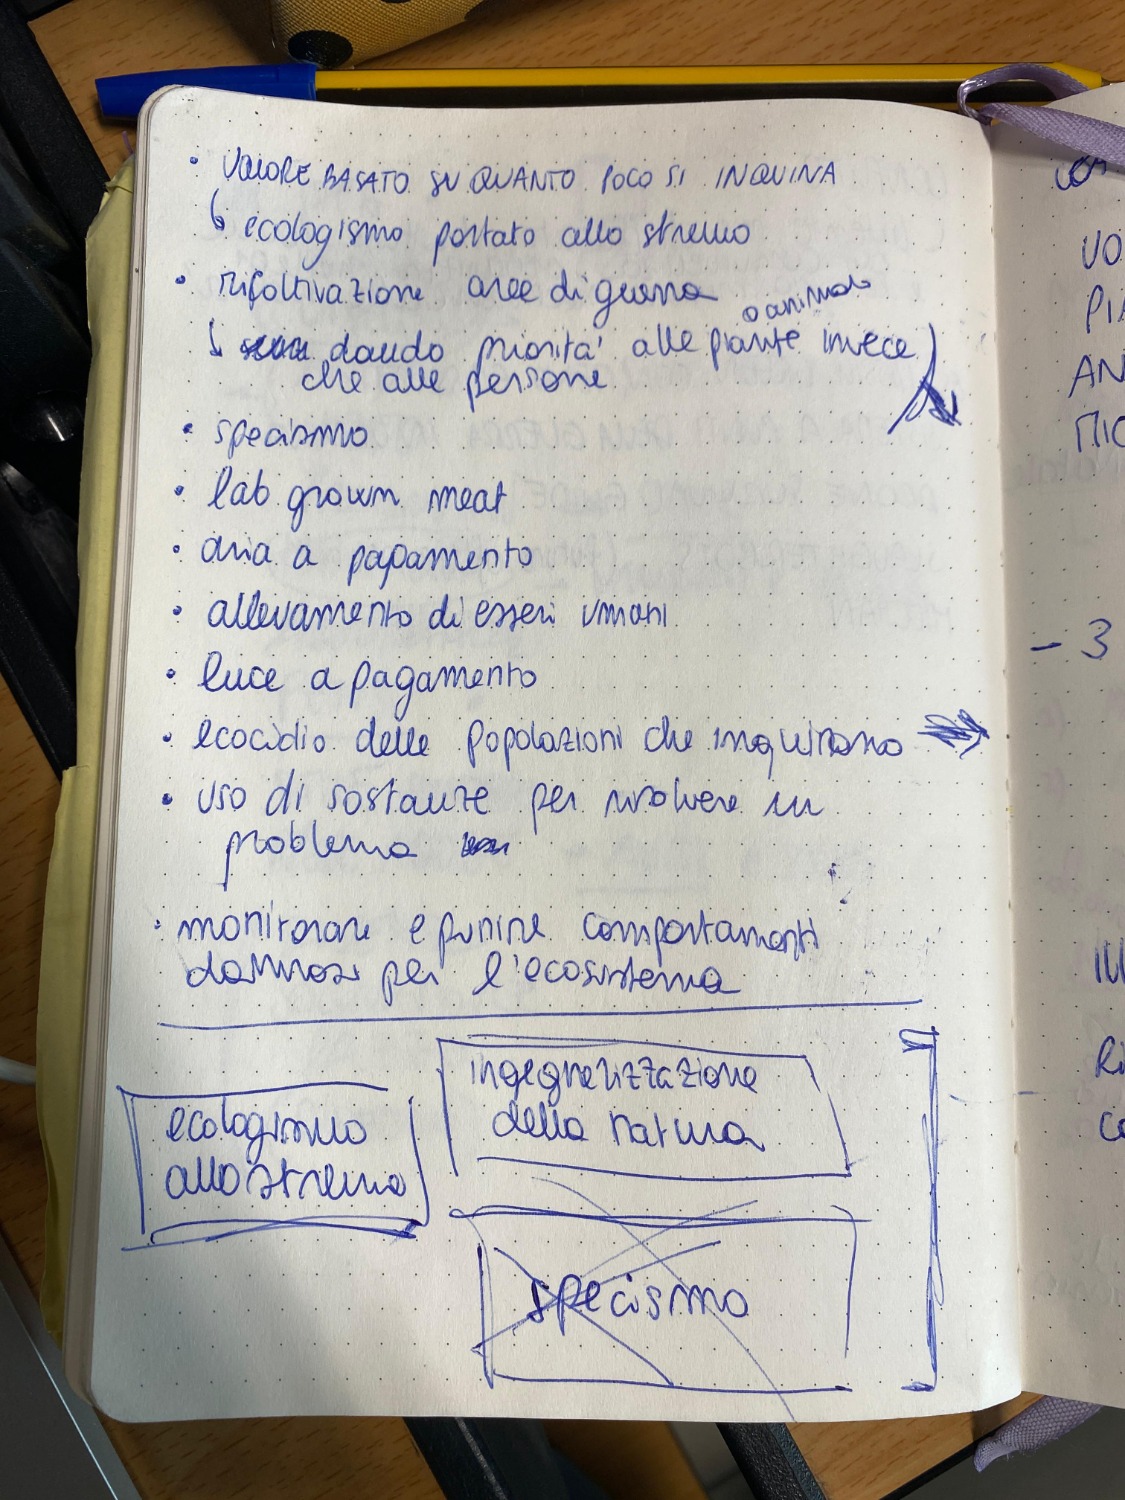 • VALORE BASATO SU QUANTO POCO SI INQUINA
↳ ecologismo portato allo stremo
• riforestivazione aree di guerra
o animale
↳ dando priorità alle piante invece
che alle persone
• specismo
• lab grown meat
• aria a pagamento
• allevamento di esseri umani
• luce a pagamento
• ecocidio delle popolazioni che inquinano
• uso di sostanze per risolvere un
problema
• monitorare e punire comportamenti
dannosi per l'ecosistema
ingegnerizzazione
della natura
ecologismo
allo stremo
specismo
VO
PIA
AN
MIC
- 3